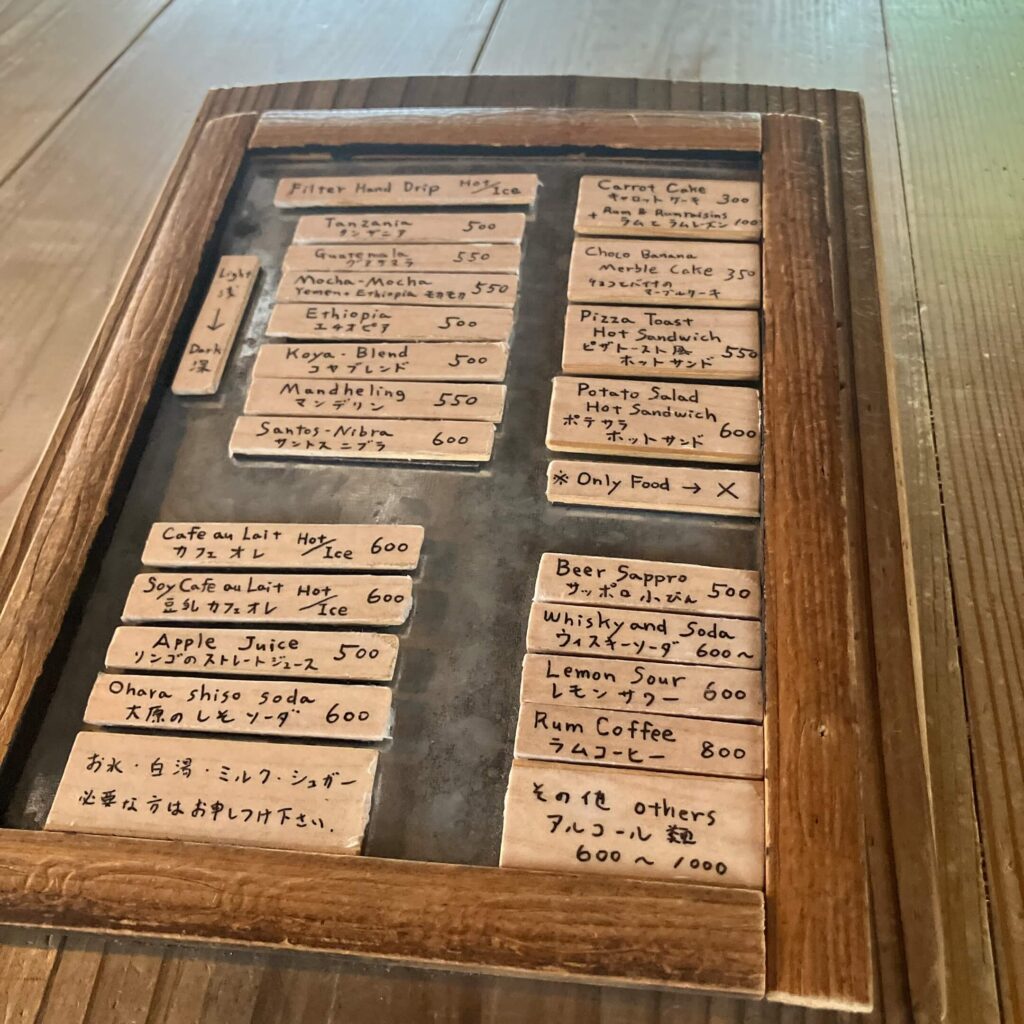 Filter Hand Drip Hot/Ice
Light
浅
↓
Dark
深
Tanzania 500
タンザニア
Guatemala 550
グアテマラ
Mocha-Mocha 550
Yemen + Ethiopia モカモカ
Ethiopia 500
エチオピア
Koya-Blend 500
コヤブレンド
Mandheling 550
マンデリン
Santos-Nibra 600
サントスニブラ
Cafe au Lait Hot/Ice 600
カフェオレ
Soy Cafe au Lait Hot/Ice 600
豆乳カフェオレ
Apple Juice 500
リンゴのストレートジュース
Ohara shiso soda
大原のしそソーダ 600
お水・白湯・ミルク・シュガー
必要な方はお申しつけ下さい.
Carrot Cake 300
キャロットケーキ
+ Rum & Rumraisins 100
ラムとラムレーズン
Choco Banana
Merble Cake 350
チョコとバナナの
マーブルケーキ
Pizza Toast
Hot Sandwich
ピザトースト風 550
ホットサンド
Potato Salad
Hot Sandwich
ポテサラ 600
ホットサンド
※ Only Food → ×
Beer Sappro 500
サッポロ小びん
Whisky and Soda
ウィスキーソーダ 600〜
Lemon Sour 600
レモンサワー
Rum Coffee
ラムコーヒー 800
その他 others
アルコール類
600〜1000